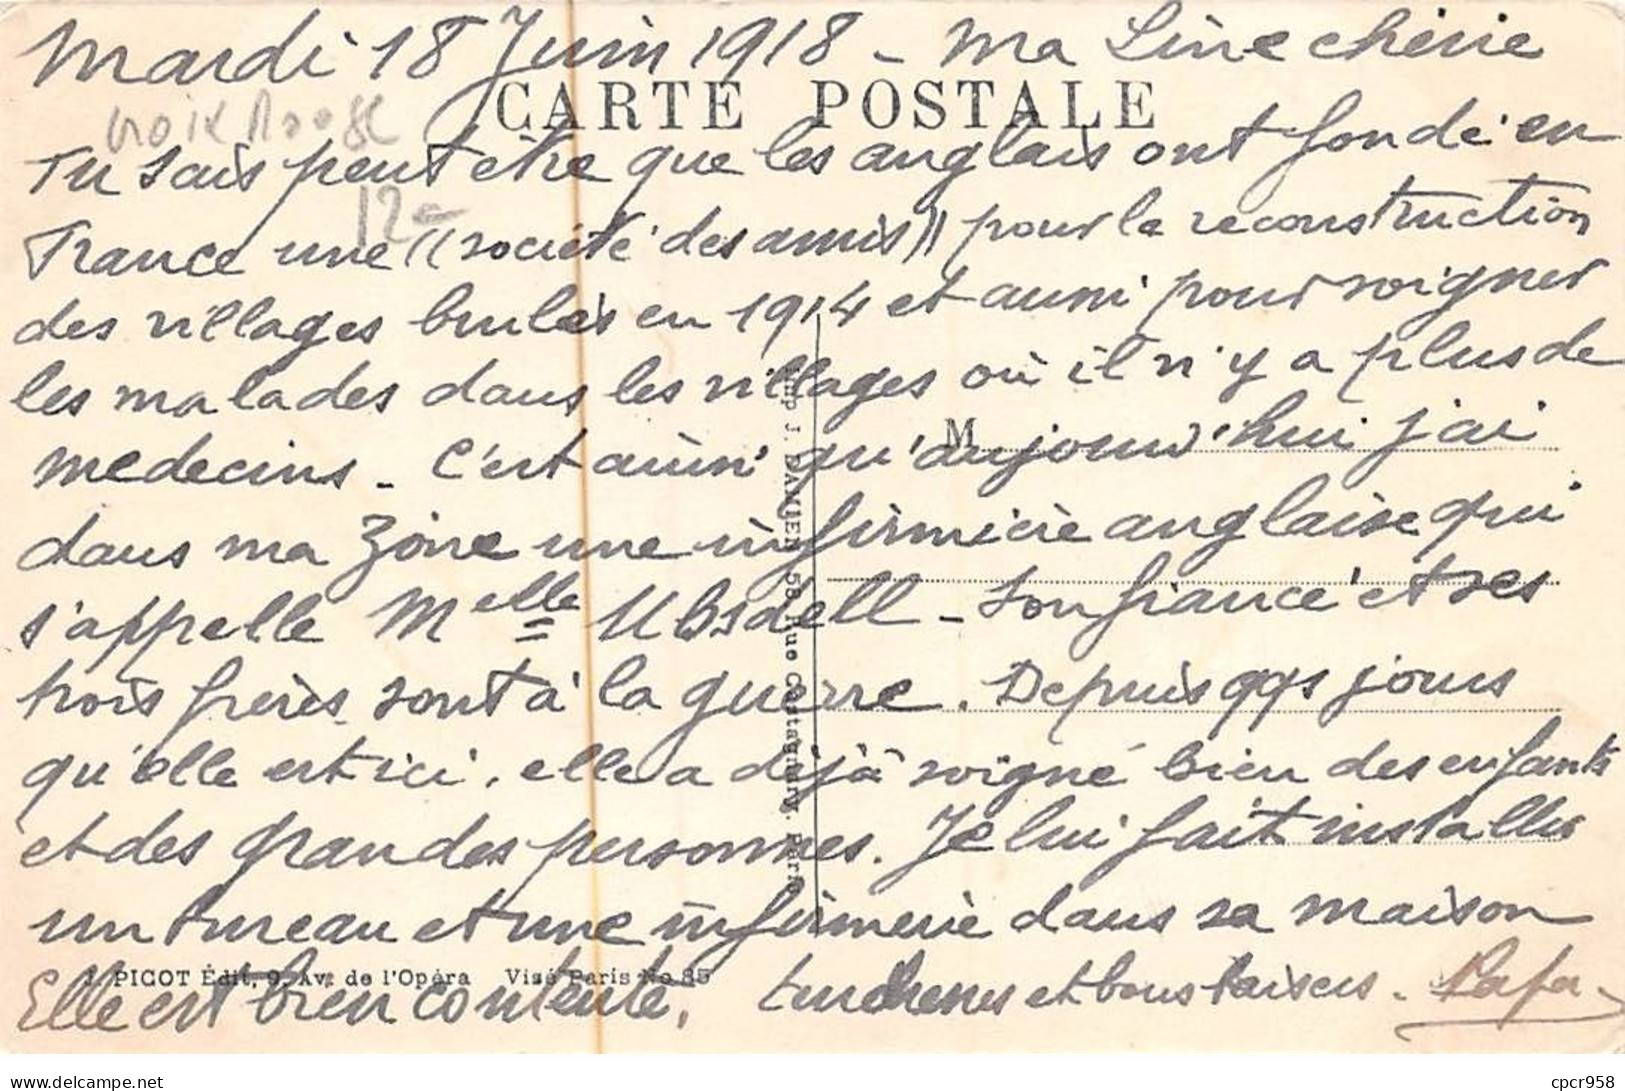 Mardi 18 Juin 1918 - Ma Line chérie
CARTE POSTALE
croix Rouge
Tu sais peut être que les anglais ont fondé en
12-
France une ((société des amis)) pour la reconstruction
des villages brulés en 1914 et aussi pour soigner
les malades dans les villages où il n'y a plus de
M
medecins - C'est ainsi qu'aujourd'hui j'ai
dans ma zone une infirmière anglaise qui
s'appelle Melle Ubsdell - son fiancé et ses
trois frères sont à la guerre. Depuis qqs jours
qu'elle est ici, elle a déjà soigné bien des enfants
et des grandes personnes. Je lui fait installer
un bureau et une infirmerie dans sa maison
J. PICOT Édit. 9, Av. de l'Opéra Visé Paris No 85
Elle est bien contente, tendresses et bons baisers. Papa.
Imp J. DAMIEN 58 Rue Castagnary. Paris
delcampe.net
cpcr958